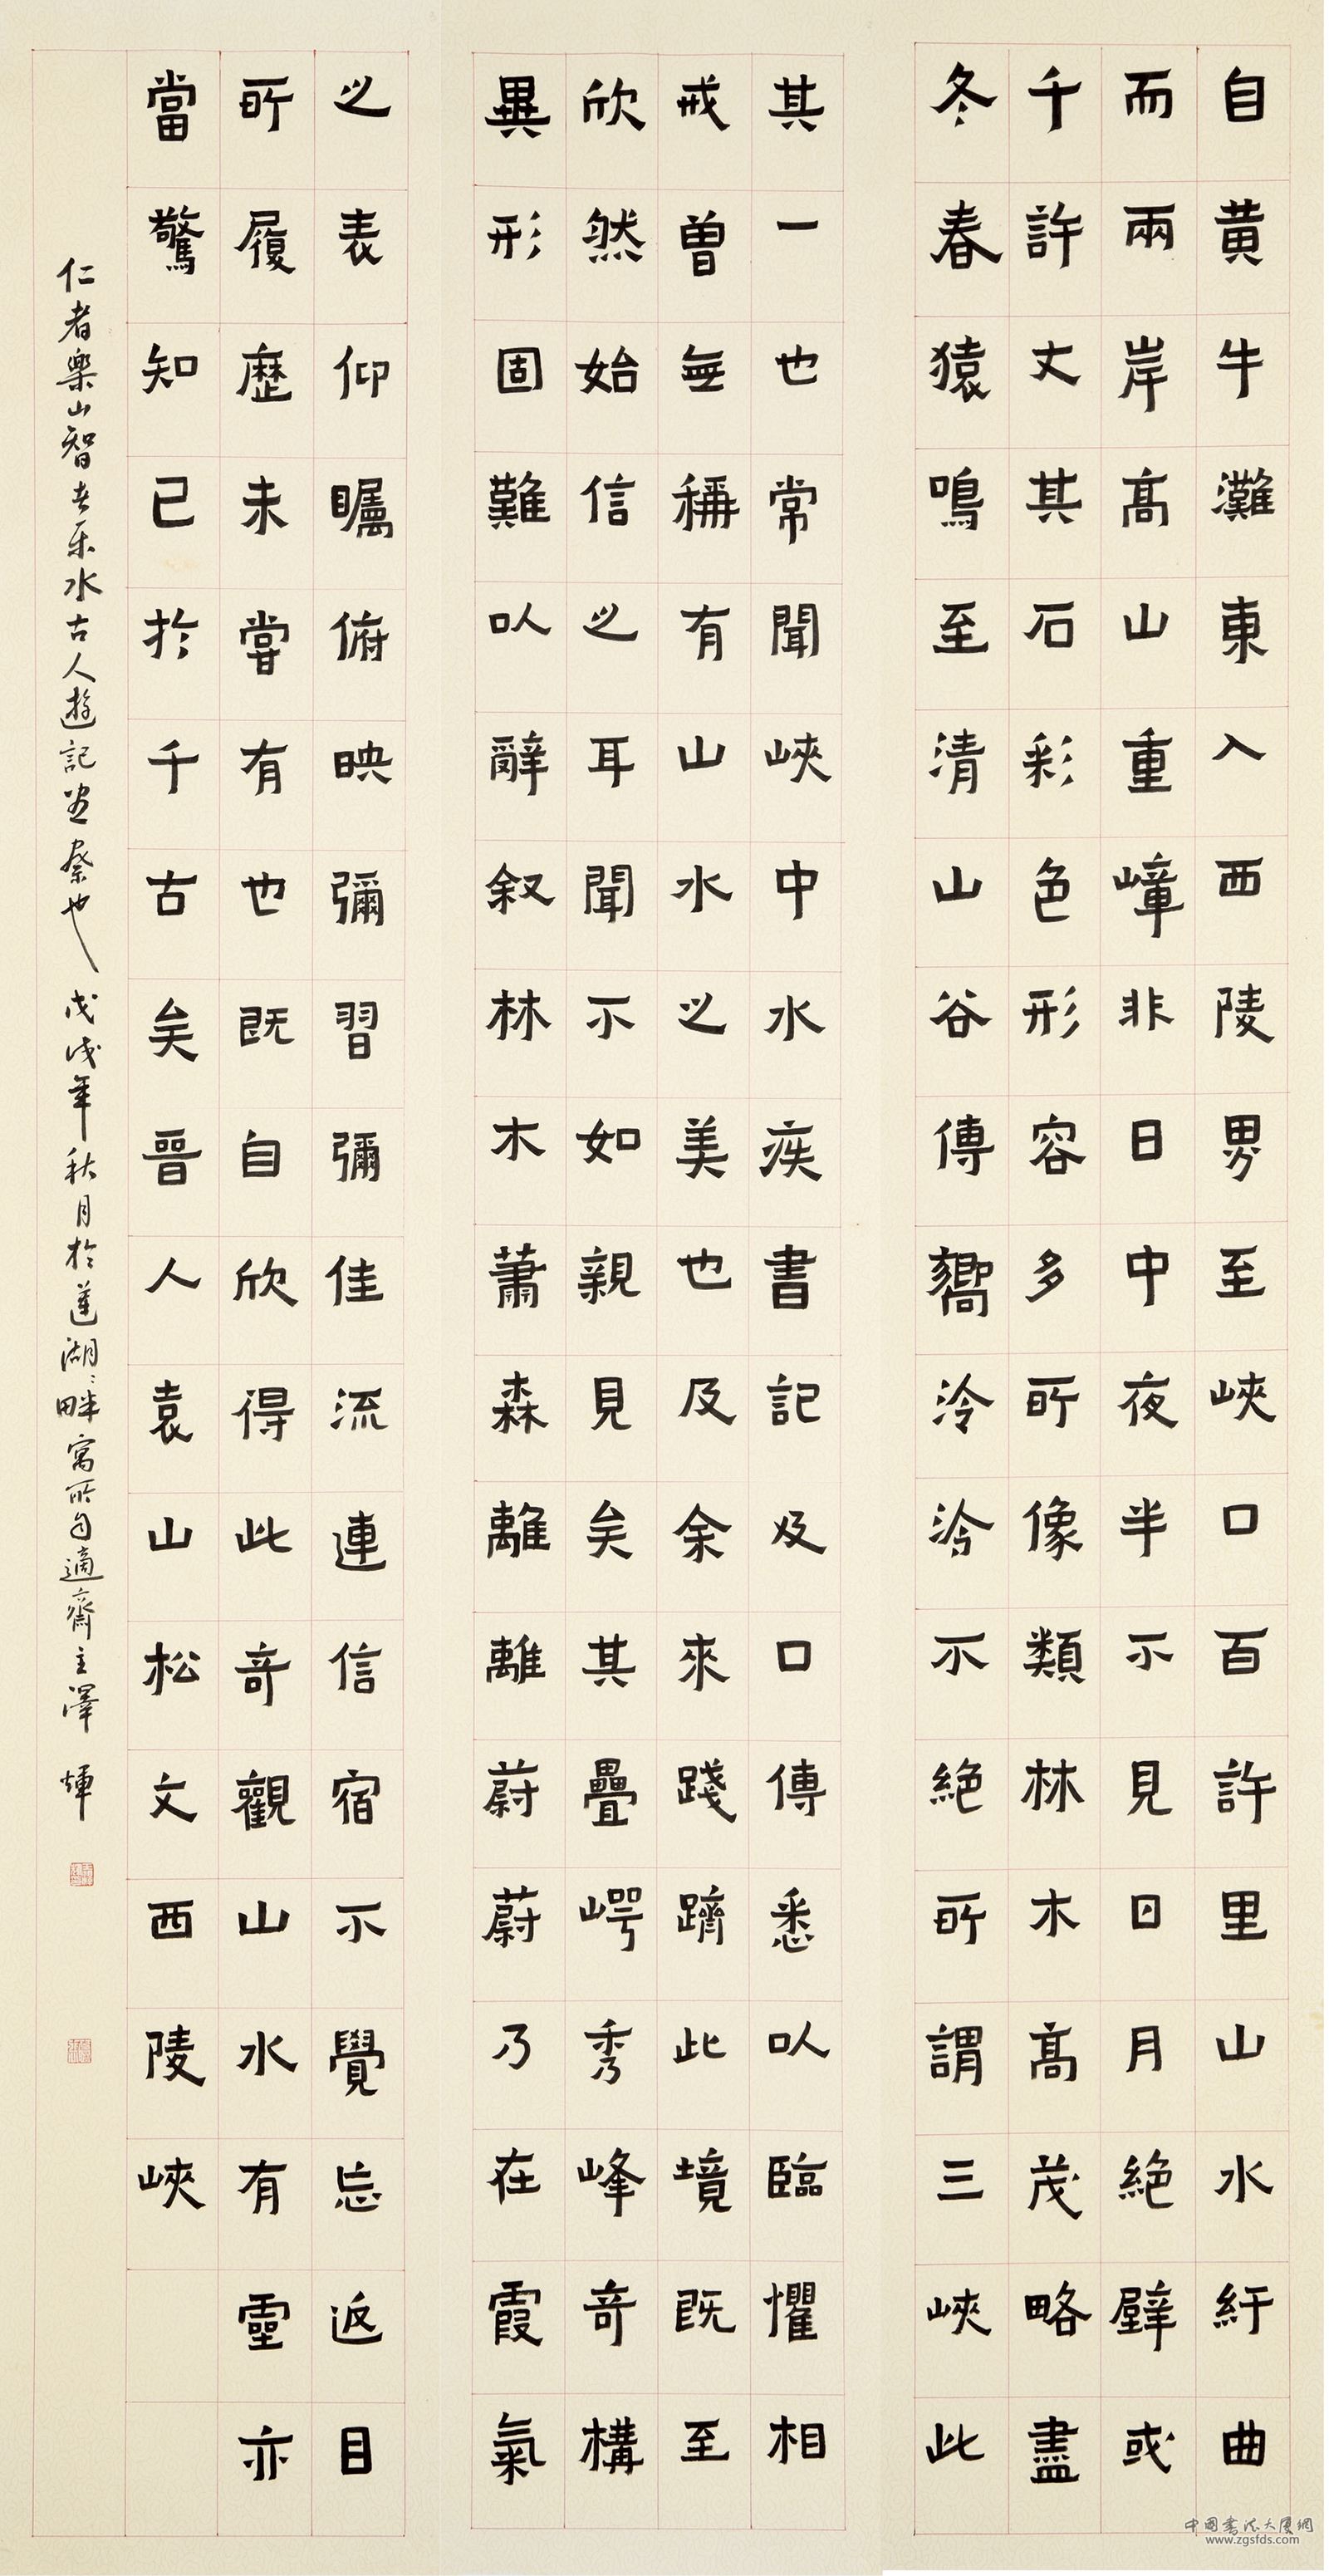 自黄牛灘東入西陵界至峽口百許里山水紆曲
而兩岸高山重嶂非日中夜半不見日月絶壁或
千許丈其石彩色形容多所像類林木高茂略盡
冬春猿鳴至清山谷傳響泠泠不絶所謂三峽此
其一也常聞峽中水疾書記及口傳悉以臨懼相
戒曽無稱有山水之美也及余來踐躋此境既至
欣然始信之耳聞不如親見矣其疊崿秀峰奇構
異形固難以辭叙林木蕭森離離蔚蔚乃在霞氣
之表仰矚俯映彌習彌佳流連信宿不覺忘返目
所履歷未嘗有也既自欣得此奇觀山水有靈亦
當驚知己於千古矣晉人袁山松文西陵峽
仁者樂山智者乐水古人遊記益發也戊戌年秋月於蓮湖湖畔寓所自適齋主澤輝
中国書法大厦網
www.zgsfds.com